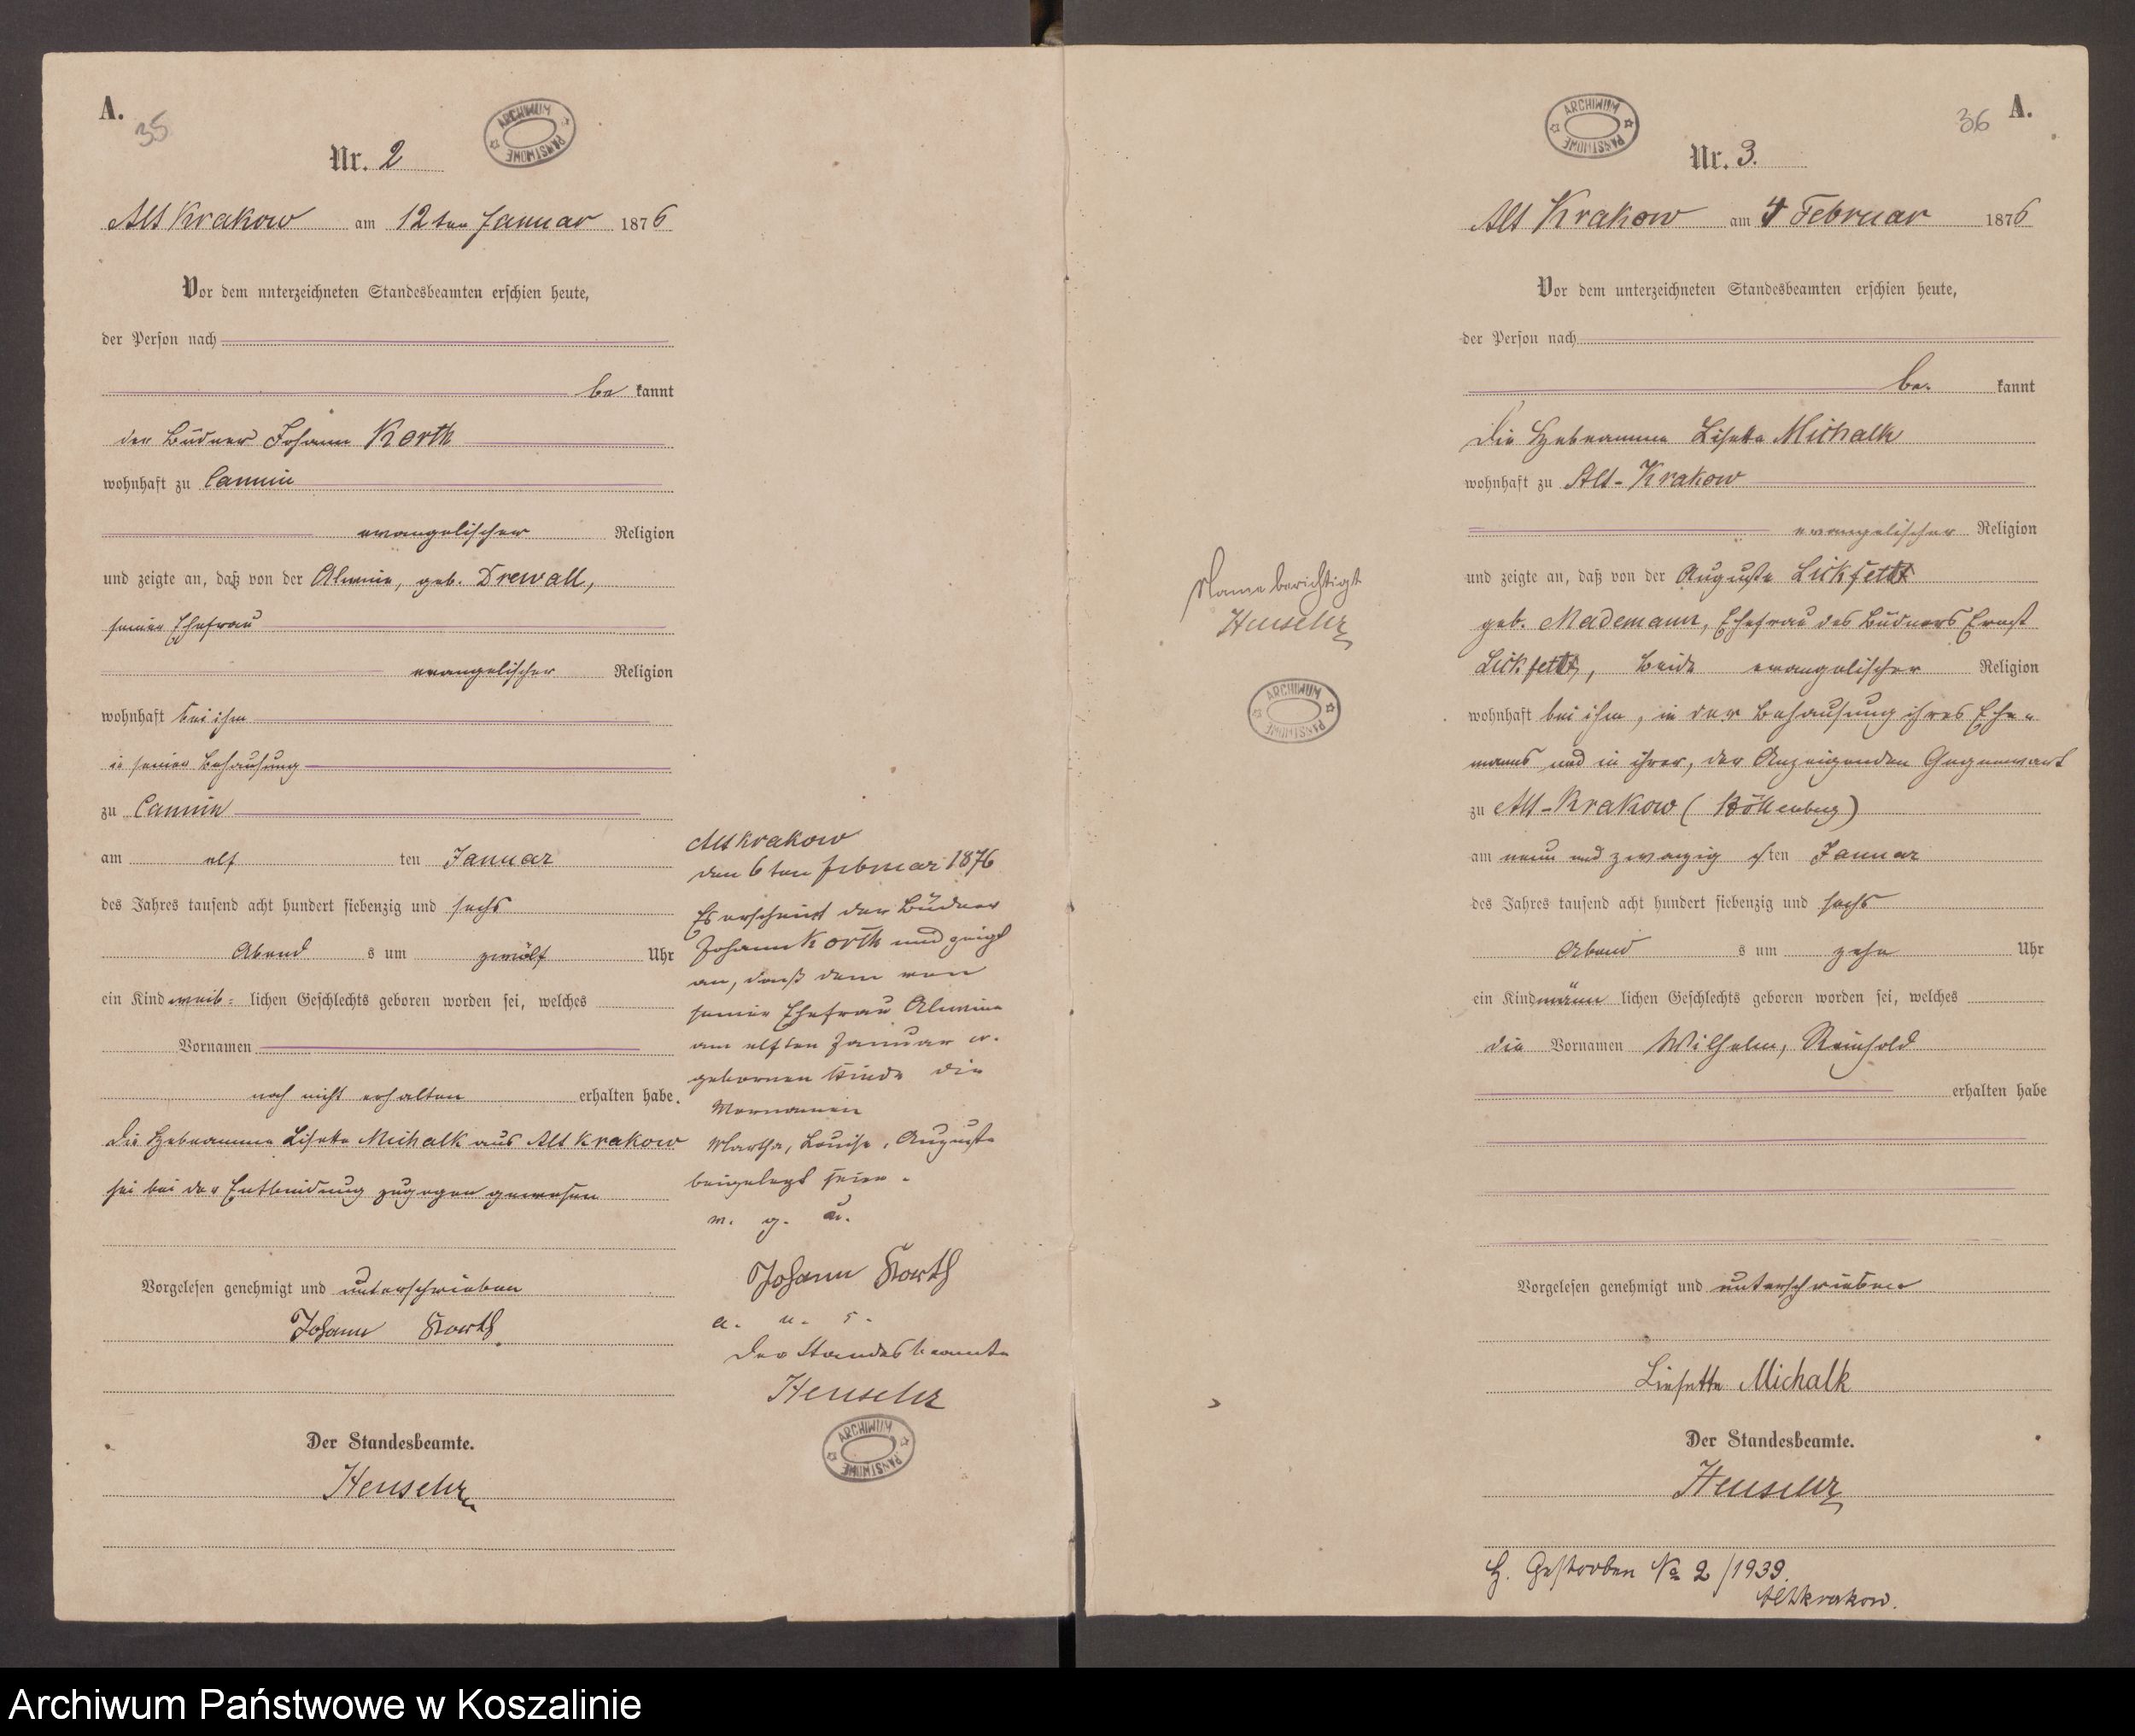 A.
35
ARCHIWUM PAŃSTWOWE
Nr. 2
Alt Krakow am 12ten Januar 1876
Vor dem unterzeichneten Standesbeamten erschien heute,
der Person nach
be kannt
der Büdner Johann Korth
wohnhaft zu Cannin
evangelischer Religion
und zeigte an, daß von der Alwine, geb. Drewall,
seiner Ehefrau
evangelischer Religion
wohnhaft bei ihm
in seiner Behausung
zu Cannin
am elf ten Januar
des Jahres tausend acht hundert siebenzig und sechs
Abend s um zwölf Uhr
ein Kind weib- lichen Geschlechts geboren worden sei, welches
Vornamen
noch nicht erhalten erhalten habe.
Die Hebeamme Lisette Michalk aus Alt Krakow
sei bei der Entbindung zugegen gewesen
Vorgelesen genehmigt und unterschrieben
Johann Korth
Der Standesbeamte.
Altkrakow
den 6ten Februar 1876
Es erscheint der Büdner
Johann Korth und zeigt
an, daß dem von
seiner Ehefrau Alwine
am elften Januar cr.
gebornen Kinde die
Vornamen
Martha, Louise, Auguste
beigelegt seien.
v. g. u.
Johann Korth
a. u. s.
Der Standesbeamte
ARCHIWUM PAŃSTWOWE
Name berichtigt
ARCHIWUM PAŃSTWOWE
ARCHIWUM PAŃSTWOWE
36
A.
Nr. 3.
Alt Krakow am 4 Februar 1876
Vor dem unterzeichneten Standesbeamten erschien heute,
der Person nach
be. kannt
Die Hebeamme Lisette Michalk
wohnhaft zu Alt-Krakow
evangelischer Religion
und zeigte an, daß von der Auguste Lickfett
geb. Mademann, Ehefrau des Büdners Ernst
Lickfett, beide evangelischer Religion
wohnhaft bei ihm, in der Behausung ihres Ehe-
manns und in ihrer, der Anzeigenden Gegenwart
zu Alt-Krakow (
am neun und zwanzig sten Januar
des Jahres tausend acht hundert siebenzig und sechs
Abend s um zehn Uhr
ein Kind männ lichen Geschlechts geboren worden sei, welches
die Vornamen Wilhelm, Reinhold
erhalten habe
Vorgelesen genehmigt und unterschrieben
Liesette Michalk
Der Standesbeamte.
Gestorben No 2/1939.
Altkrakow.
Archiwum Państwowe w Koszalinie